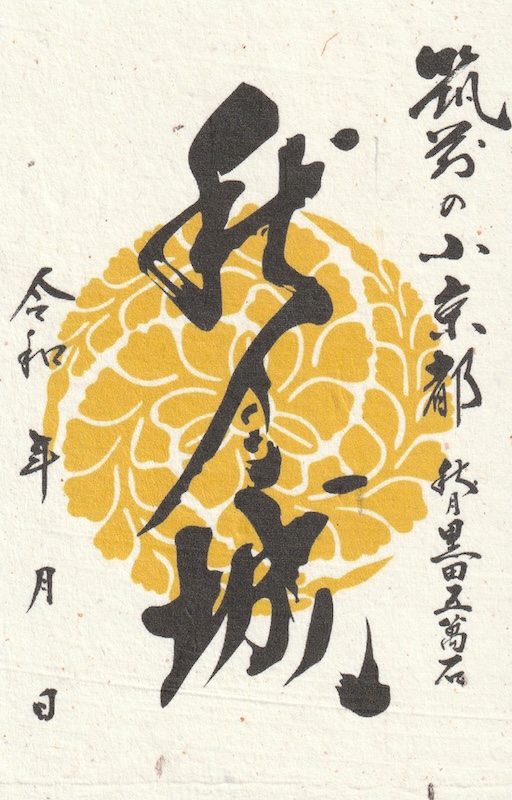 筑前の小京都 秋月黒田五萬石
秋月城
令和 年 月 日